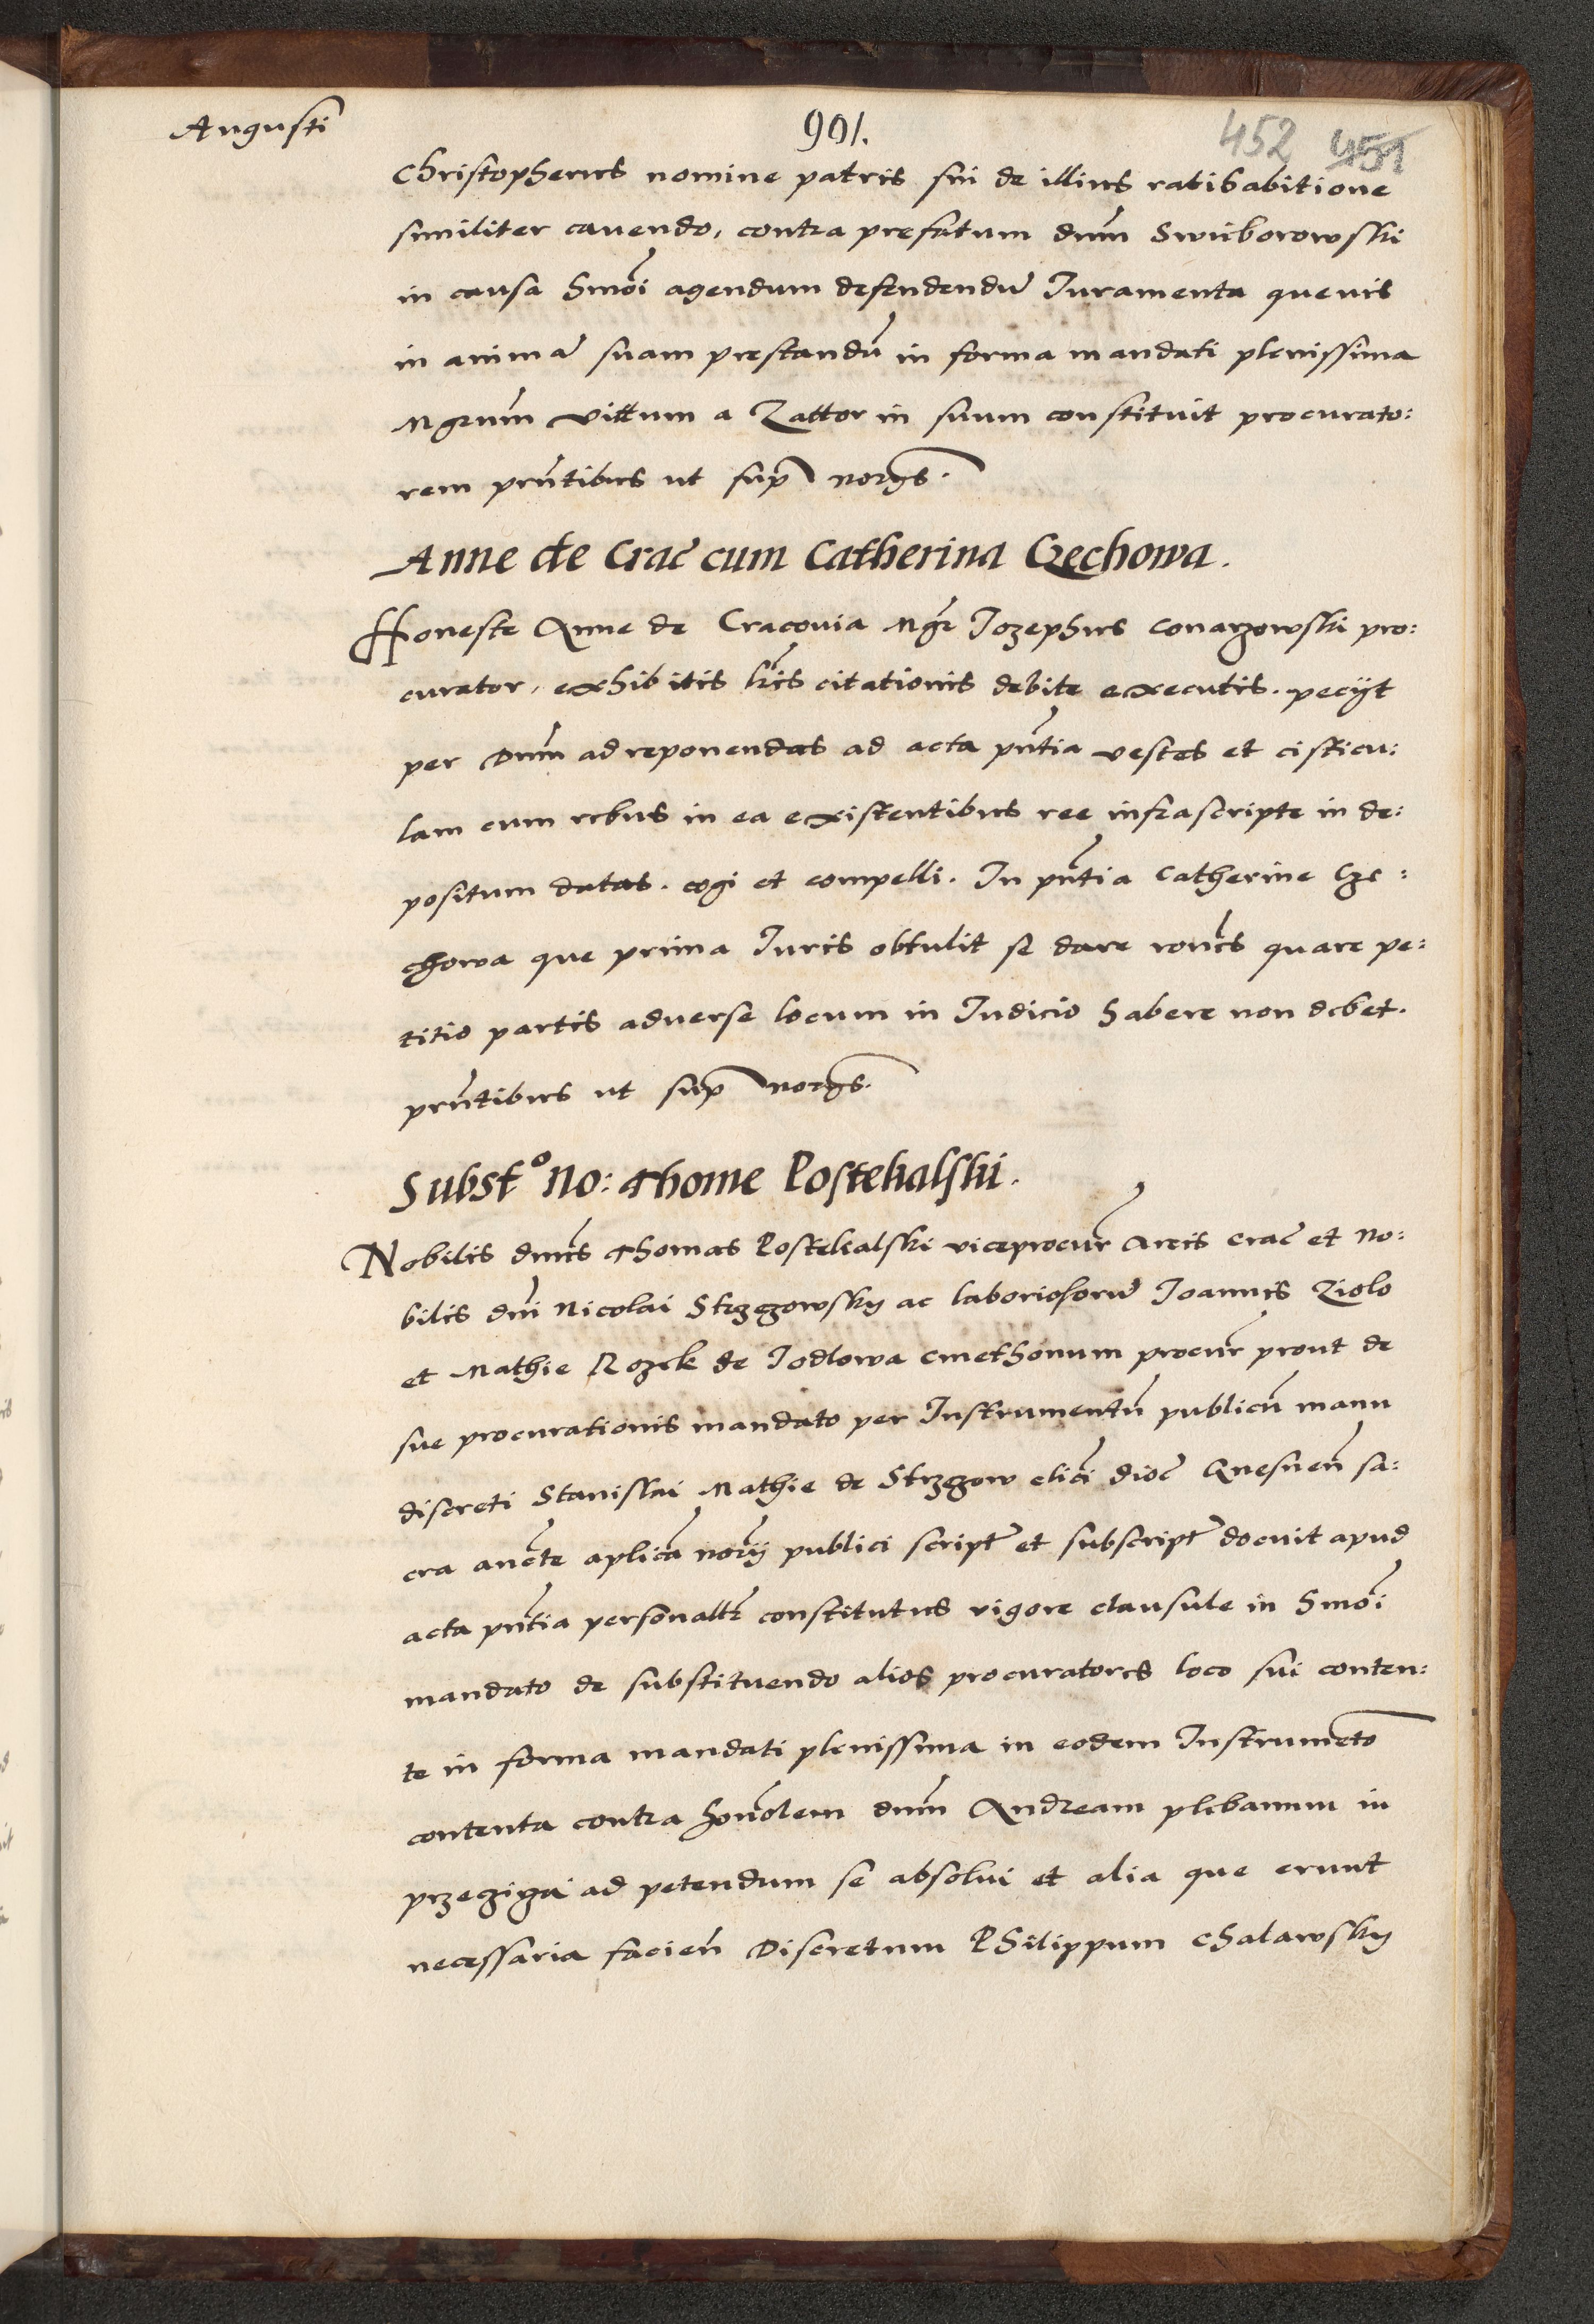 Augusti
901.
452 451
Christopherus nomine patris sui de illius ratihabitione
similiter cavendo, contra prefatum dnm̃ Swirborowski
in causa hmoĩ agendum defendendũ Juramenta quevis
in animã suam prestandũ in forma mandati plenissima
Mgrum̃ Vittum a Zattor in suum constituit procurato:
rem prñtibus ut sup̃ norgs.
Anne de Crac̃ cum Catherina Czechowa.
Honeste Anne de Cracovia Mgr̃ Jozephus Conarzowski pro:
curator, exhibitis lr̃is citationis debite executis. peciit
per Dnm̃ ad reponendas ad acta pñtia vestes et cisticu:
lam cum rebus in ea existentibus ree infrascripte in de:
positum datas. cogi et compelli. In pñtia Catherine Cze:
chowa que prima Juris obtulit se dare roñes quare pe:
titio partis adverse locum in Judicio habere non debet.
prñtibus ut sup̃ norgs.
Substº No: Thome Postekalski.
Nobilis dnũs Thomas Postekalski viceprocur̃ Arcis Crac̃ et No:
bilis dnĩ Nicolai Strzegowsky ac laboriosorũ Joannis Ziolo
et Mathie Rozek de Jodlowa cmethonum procur̃ prout de
sue procurationis mandato per Instrumentũ publicũ manu
discreti Stanislai Mathie de Strzegow clicĩ dioc̃ Gnesneñ sa:
cra aucte aplica norij publici script̃ et subscript̃ docuit apud
acta pñtia personaltr̃ constitutus vigore clausule in hmoĩ
mandato de substituendo alios procuratores loco sui conten:
te in forma mandati plenissima in eodem Instrumẽto
contenta contra honõlem dnm̃ Andream plebanum in
przegigai ad petendum se absolvi et alia que erunt
necessaria facieñ Discretum Philippum Chalawsky